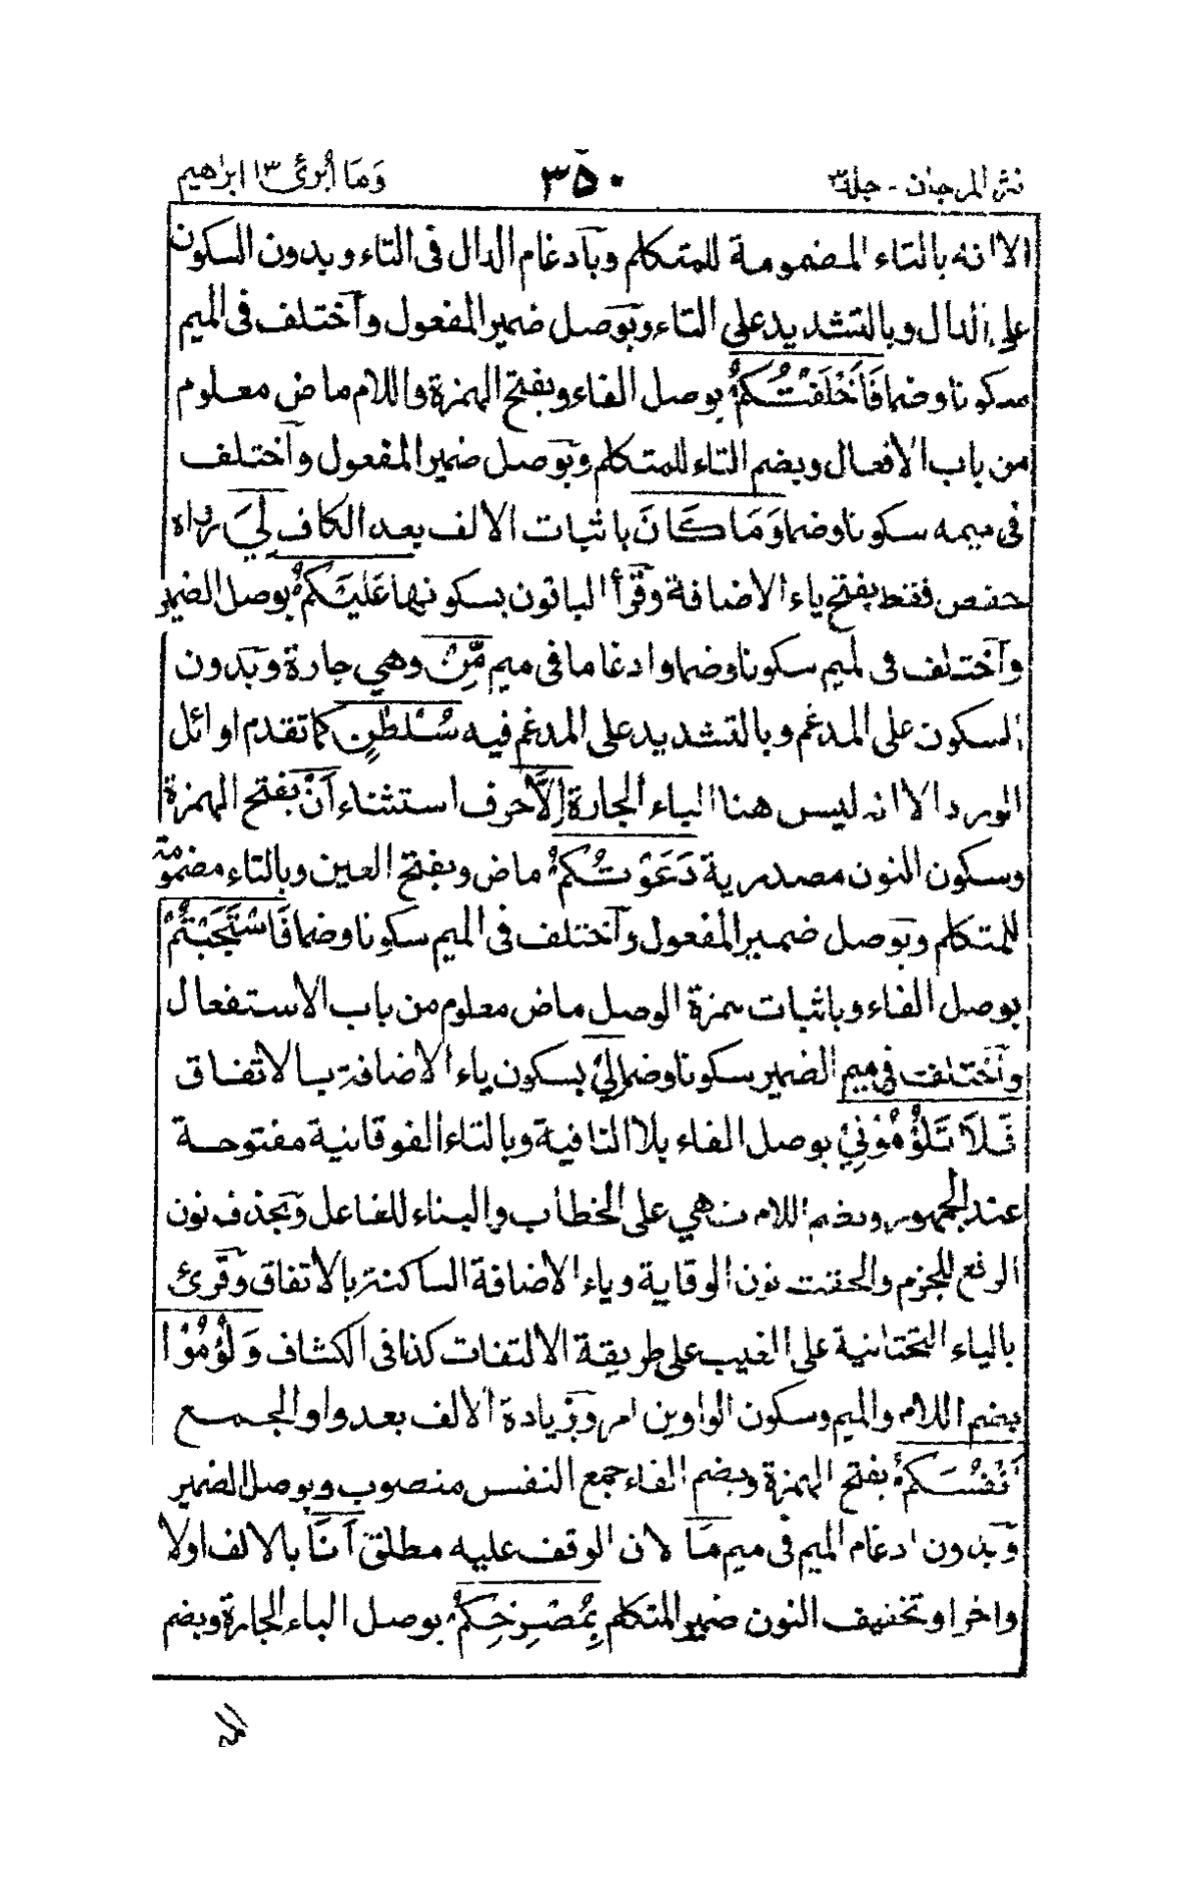 نثر المرجان - جلد ٣
٣٥٠
وَمَا أُبَرِّئُ ١٣ ابراهيم
الا انه بالتاء المضمومة للمتكلم وبآدغام الدال فى التاء وبدون السكون
على الدال وبالتشديد على التاء وبوصل ضمير المفعول وآختلف فى الميم
سكونا وضما فَاَخْلَفْتُكُمْ بوصل الفاء وبفتح الهمزة واللام ماض معلوم
من باب الافعال وبضم التاء للمتكلم وبوصل ضمير المفعول وآختلف
فى ميمه سكونا وضما وَمَا كَانَ باثبات الالف بعد الكاف لِيَ رواه
حفص فقط بفتح ياء الاضافة وقرأ الباقون بسكونها عَلَيْكُمْ بوصل الضمير
وآختلف فى الميم سكونا وضما وادغاما فى ميم مِّنْ وهي جارة وبدون
السكون على المدغم وبالتشديد على المدغم فيه سُلْطٰنٍ كما تقدم اوائل
الورد الا انه ليس هنا الباء الجارة اِلَّا حرف استثناء اَنْ بفتح الهمزة
وسكون النون مصدرية دَعَوْتُكُمْ ماض وبفتح العين وبالتاء مضمومة
للمتكلم وبوصل ضمير المفعول وآختلف فى الميم سكونا وضما فَاسْتَجَبْتُمْ
بوصل الفاء وباثبات همزة الوصل ماض معلوم من باب الاستفعال
وآختلف فى ميم الضمير سكونا وضما لِيْ بسكون ياء الاضافة بالاتفاق
فَلَا تَلُوْمُوْنِيْ بوصل الفاء بلا النافية وبالتاء الفوقانية مفتوحة
عند الجمهور وبضم اللام نهي على الخطاب والبناء للفاعل وبحذف نون
الرفع للجزم والحقت نون الوقاية وياء الاضافة الساكنة بالاتفاق وقرئ
بالياء التحتانية على الغيب على طريقة الالتفات كذا فى الكشاف وَلُوْمُوْا
بضم اللام والميم وسكون الواوين امر وبزيادة الالف بعد واو الجمع
اَنْفُسَكُمْ بفتح الهمزة وبضم الفاء جمع النفس منصوب وبوصل الضمير
وبدون ادغام الميم فى ميم مَا لان الوقف عليه مطلق اَنَا بالالف اولا
واخرا وتخفيف النون ضمير المتكلم بِمُصْرِخِكُمْ بوصل الباء الجارة وبضم